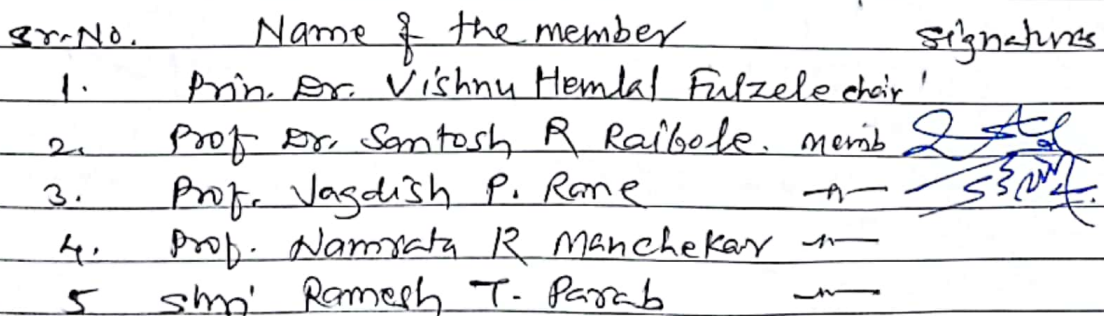 Sr. No. Name of the member Signatures
1. Prin. Dr. Vishnu Hemlal Fulzele chair'
2. Prof Dr. Santosh R Raibole. memb
3. Prof. Jagdish P. Rane —"—
4. Prof. Namrata R Manchekar —"—
5 Shri Ramesh T. Parab —"—